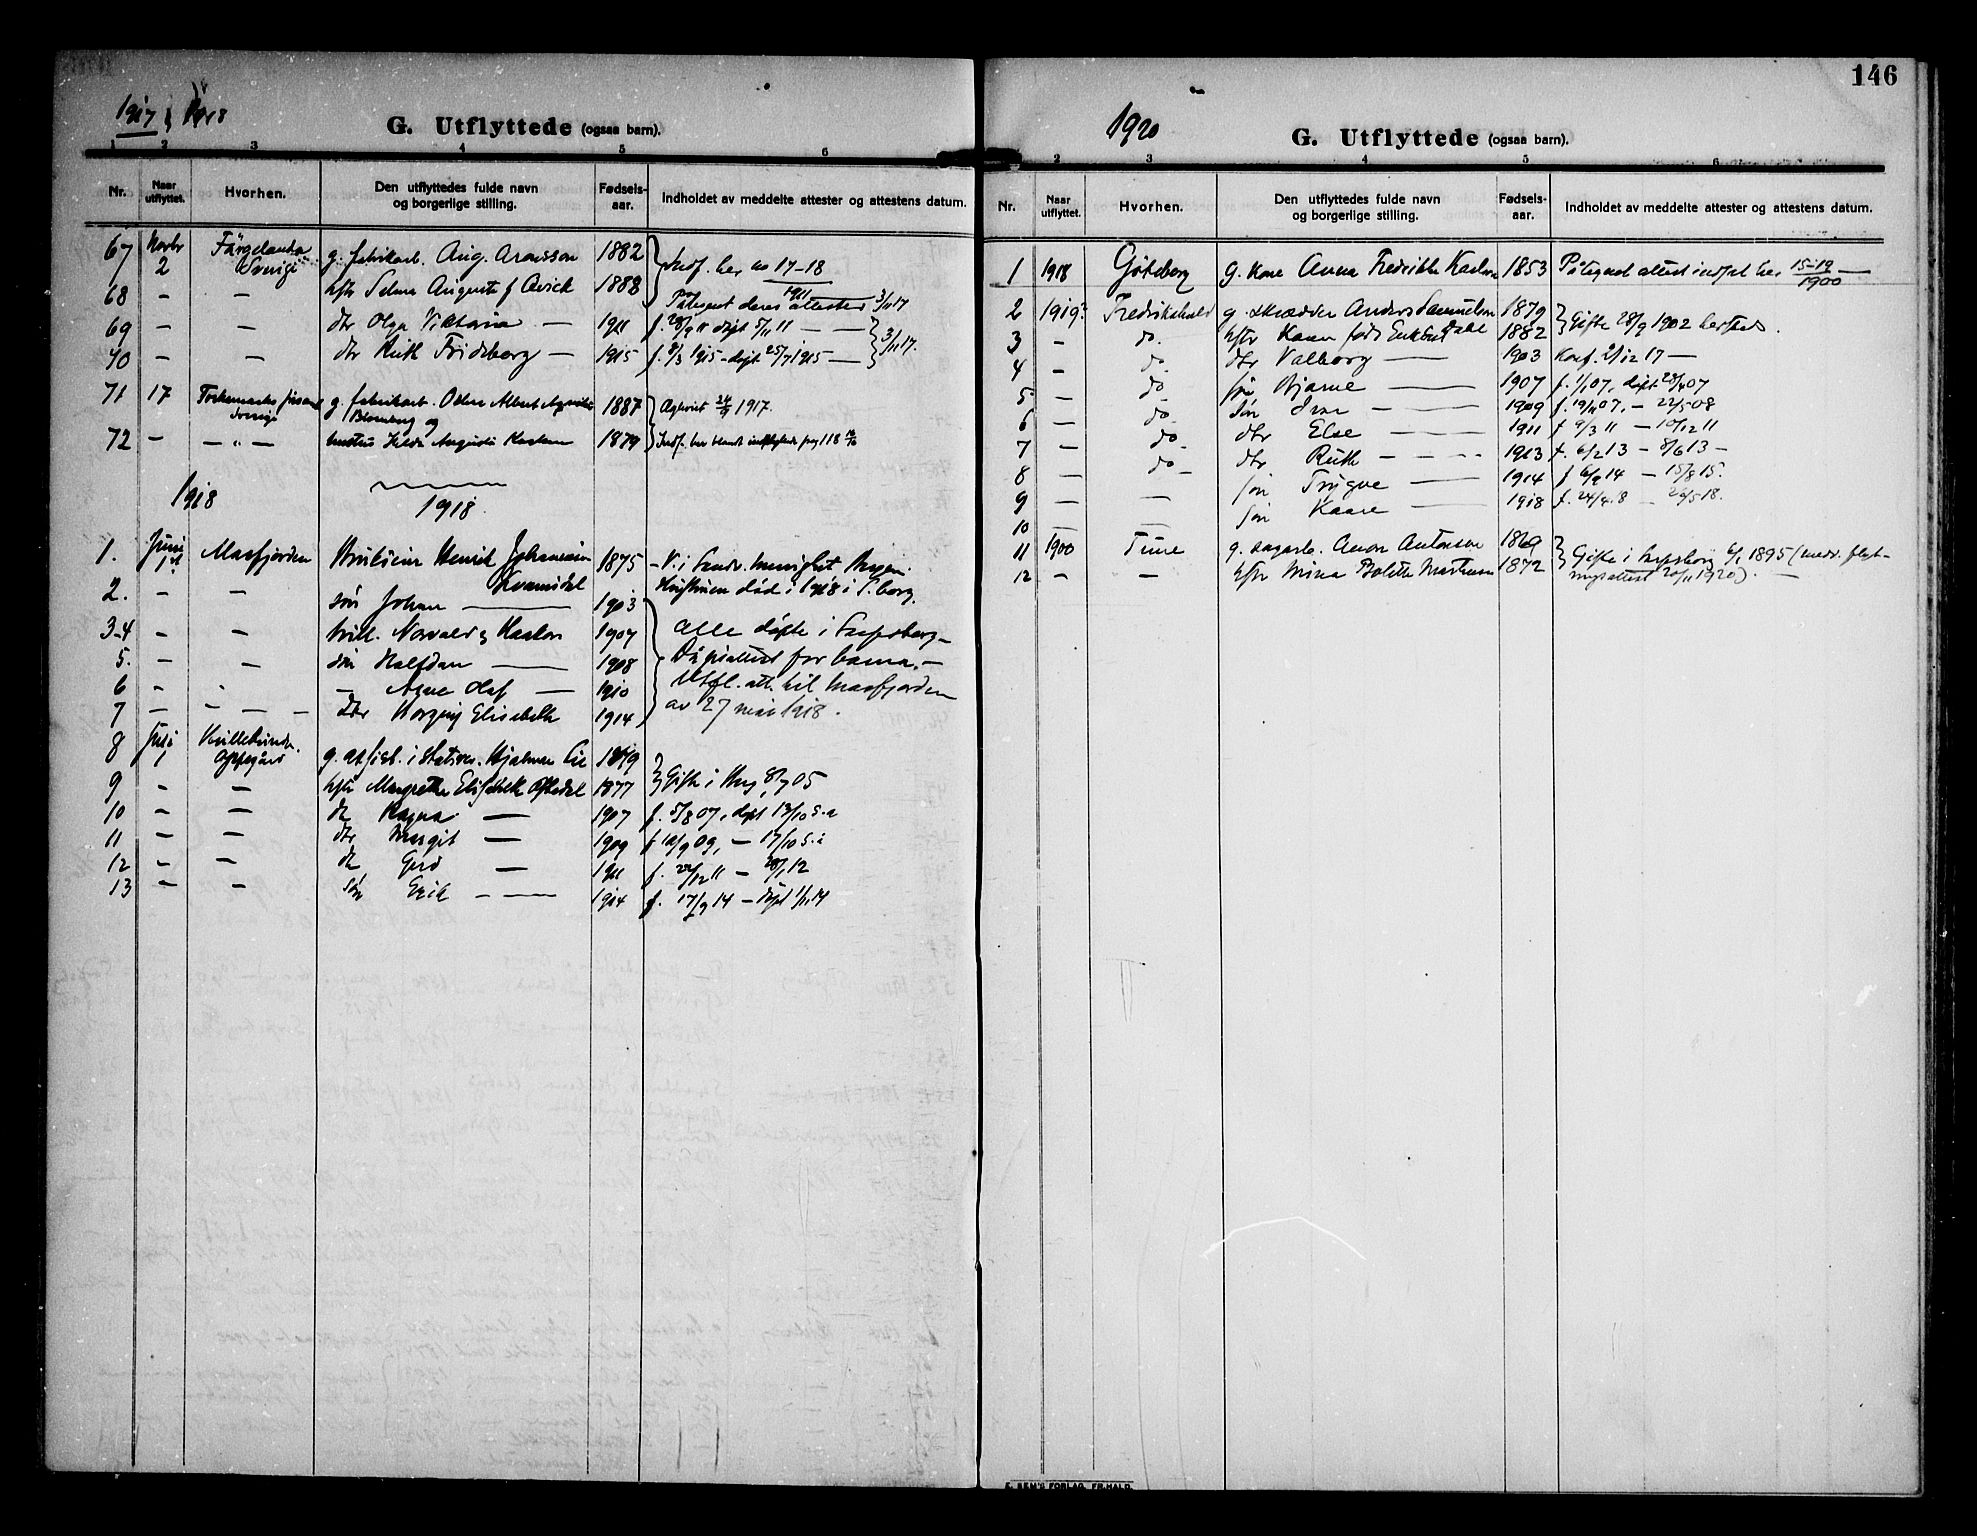 146
1917 & 1918
G. Utflyttede (ogsaa barn).
1 2 3 4 5 6
Nr. Naar utflyttet. Hvorhen. Den utflyttedes fulde navn og borgerlige stilling. Fødsels-aar. Indholdet av meddelte attester og attestens datum.
67 Novbr 2 Färgelanda Sverige g. fabrikarb. Aug. Aronsson 1882 Indf. her no 17-18 1911
68 — — hstr Selma Augusta f. 1888 Påtegnet deres attester 3/11 17
69 — — dtr Olga Viktoria — 1911 f. 28/9 11 døpt 5/11 11 — — 3/11 17.
70 — — dtr Ruth Frideborg — 1915 f. 2/3 1915 - døpt 25/7 1915 —
71 17 Sverige g. fabrikarb. Oskar Albert 1887 24/9 1917.
Blomberg og
72 — — " — hustru Hilda Augusta Karlson 1879 Indf. her blandt indflyttede pag 118
1918 1918.
1. Juni Masfjorden Henrik Johannesen 1875 — V. i menighet Bergen.
Kvamsdal Hustruen død i 1918 i S.borg.
2. — — søn Johan — 1903 Alle døpte i Sarpsborg —
3-4 — — tvill. Norvald & Karlon 1907 Dåpsattest for barna. —
5. — — søn Halfdan — 1908 Utfl. att. til Masfjorden
6 - - — Arne Olaf — 1910 av 27 mai 1918.
7 — — — — dtr Borgny Elisabeth 1914
8 Juli Oppegård g. i Hjalmar Lie 1879
9 - — hstr Margrethe Elisabeth 1877 Gifte i 05
10 — — dtr Ragna — 1907 f. 5/8 07, døpt 13/10 s.a
11 — — dtr Margit — 1909 f 12/9 09, — 17/10 s.å
12 — — dtr Gerd — 1911 f. 22/12 11 — 28/1 12
13 — — søn Erik — — 1914 f. 17/9 14 — døpt 1/11 14
1920
G. Utflyttede (ogsaa barn).
2 3 4 5 6
Nr. Naar utflyttet. Hvorhen. Den utflyttedes fulde navn og borgerlige stilling. Fødsels-aar. Indholdet av meddelte attester og attestens datum.
1 1918 Göteborg g. kone Anna Fredrikke Karlson 1853 Påtegnet attest indført her 15-19 1900 —
2 1919? Fredrikshald g. skrædder Anders Samuelsen 1879 Gifte 28/9 1902 hersteds.
3 — do. hstr Karen født 1882
4 — do dtr Valborg — 1903 Konf. 2/12 17 —
5 — do søn Bjarne — 1907 f. 1/1 07, døpt 28/4 07
6 — do søn — — 1909 f. 19/11 07, — 22/5 08
7 — do dtr Else — — 1911 f 9/3 11 — 10/12 11
8 — do — dtr Ruth — — 1913 f. 6/2 13 — 8/6 13 —
9 — — søn Trygve — 1914 f 6/9 14 — 15/8 15.
10 — — søn Kaare — 1918 f. 24/4 18 — 26/5 18.
11 1900 Tune g. sagarb. Anton Antonsen 1869 Gifte i Sarpsborg 6/1 1895 (medd. flyt-
12 — — hstr Mina Bolette Martinsen 1872 ningsattest 20/11 1920). —
E. SEM'S FORLAG, FR.HALD.